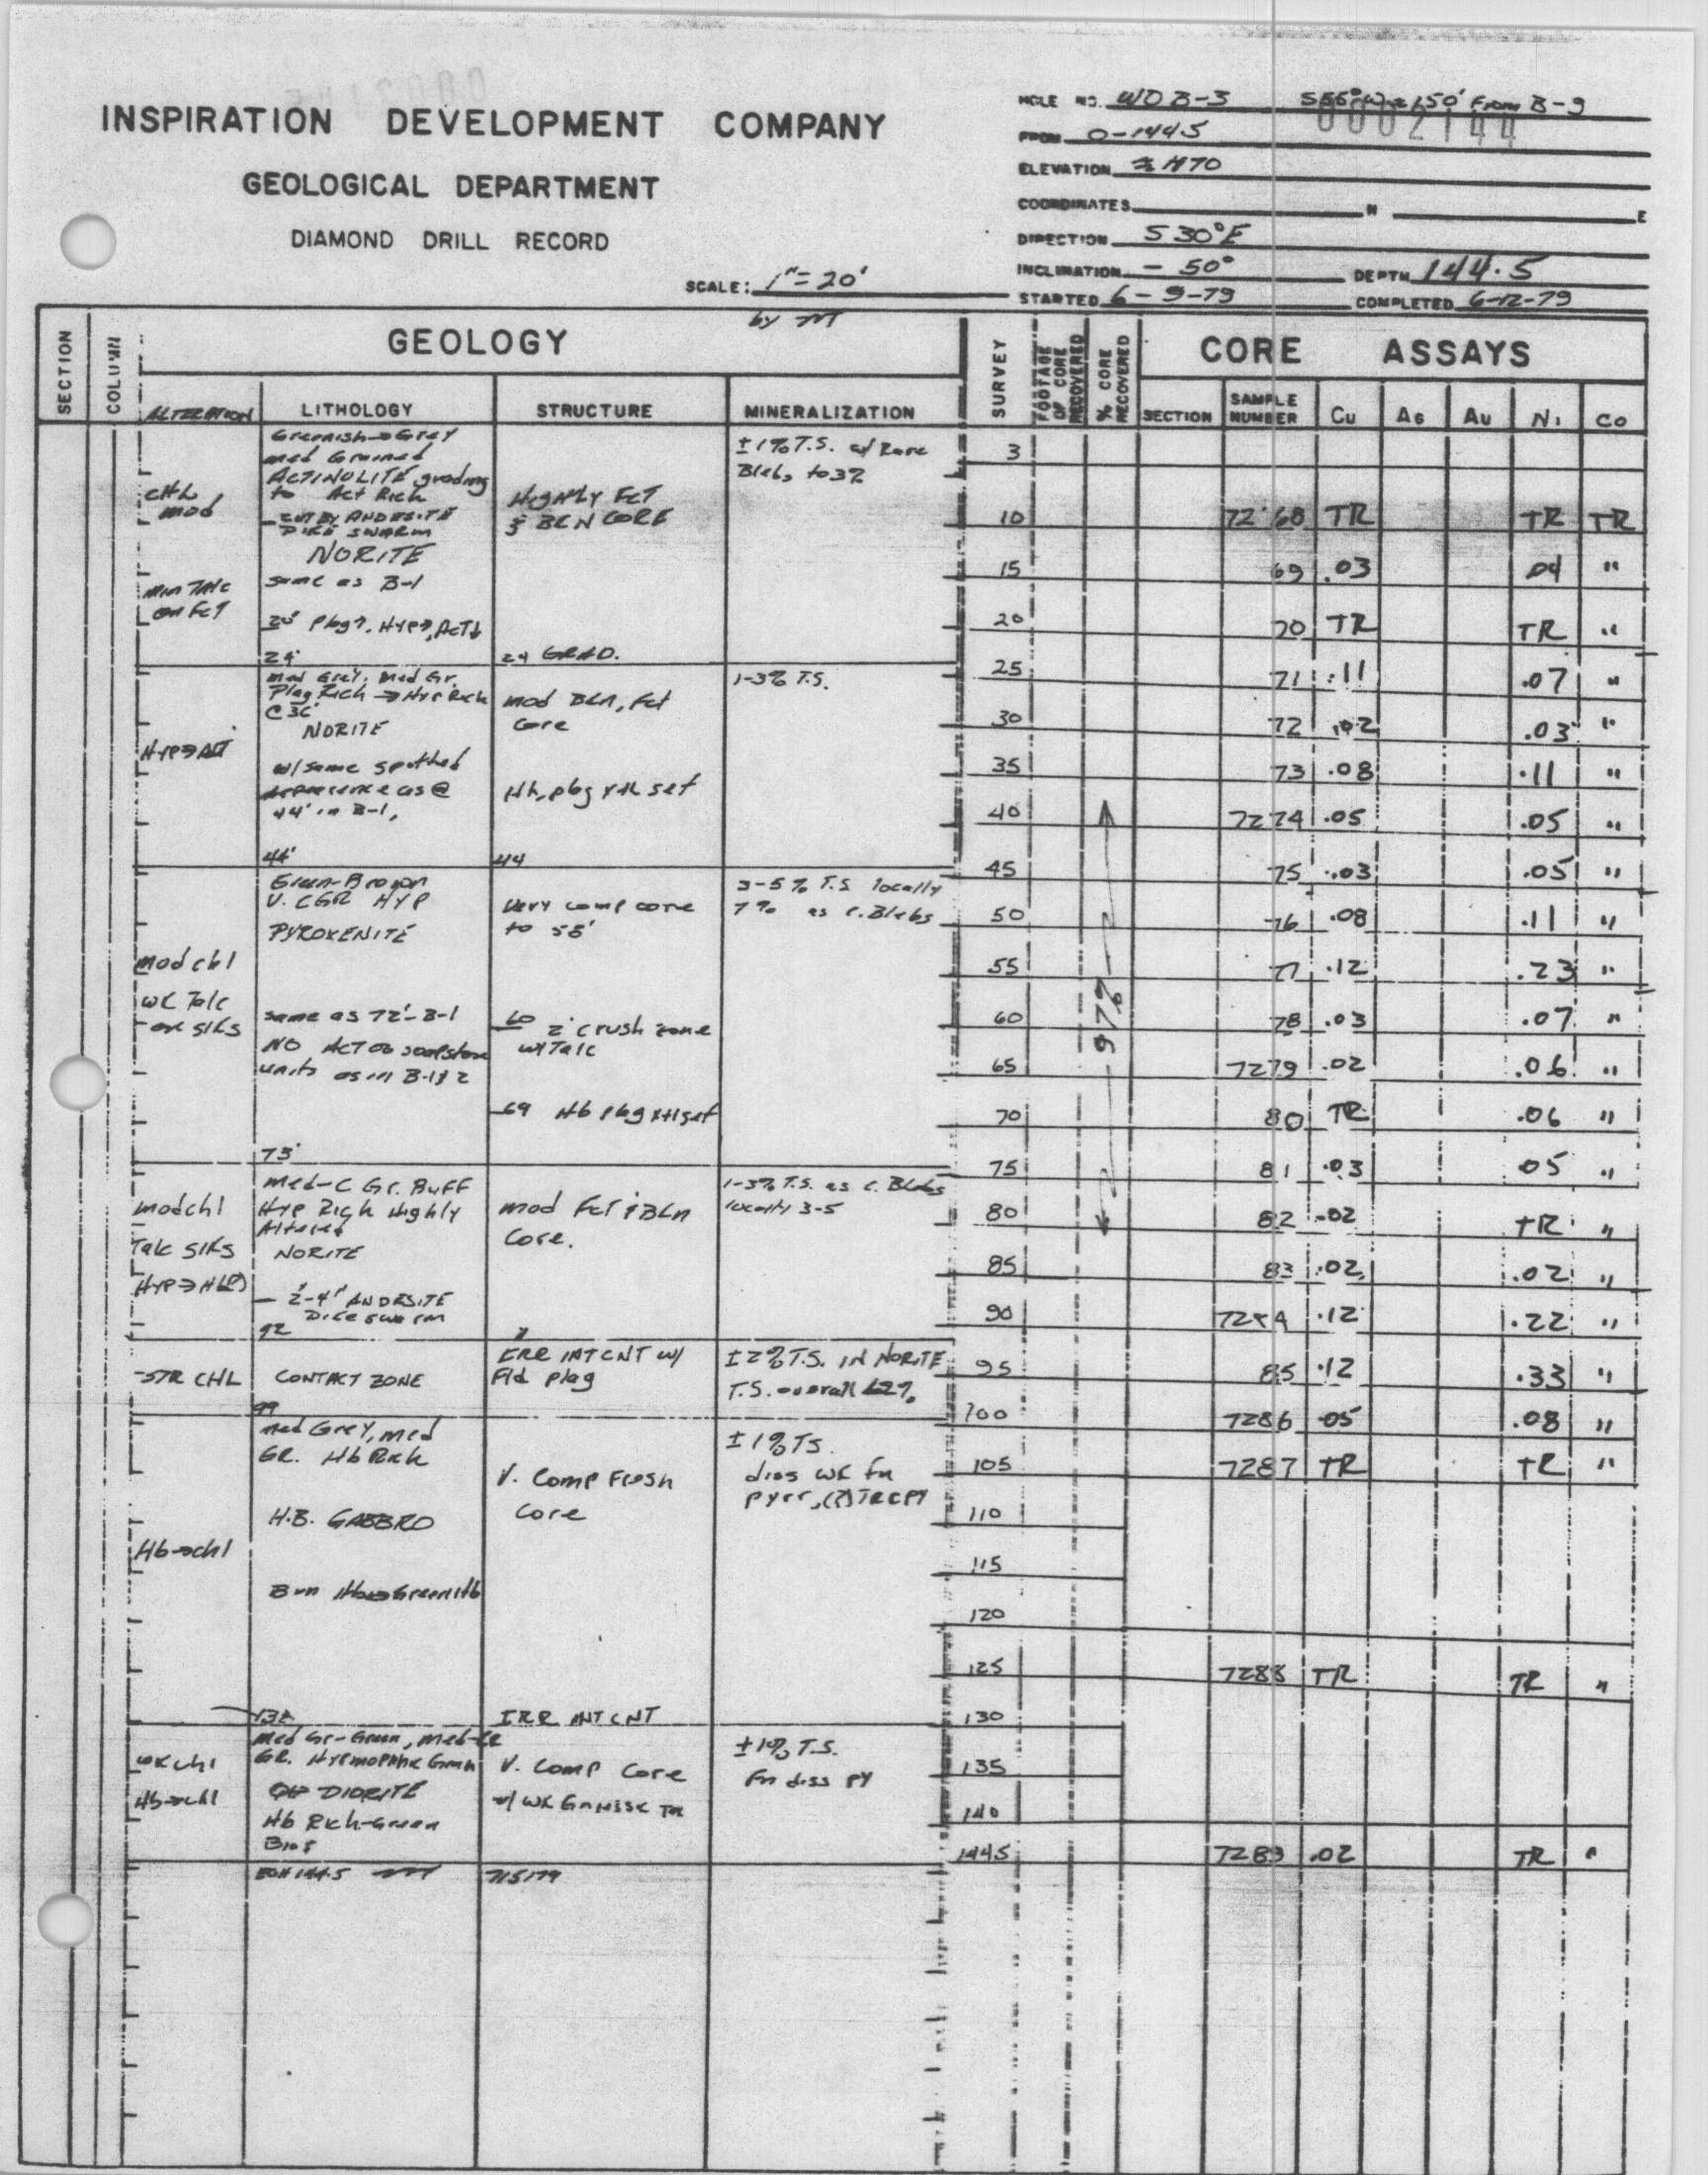 INSPIRATION DEVELOPMENT COMPANY
GEOLOGICAL DEPARTMENT
DIAMOND DRILL RECORD
SCALE: 1"=20'
by
HOLE NO. WDB-3 From B-
0002144
FROM 0-144.5
ELEVATION
COORDINATES N E
DIRECTION S 30°E
INCLINATION - 50° DEPTH 144.5
STARTED 6-9-79 COMPLETED 6-12-79
SECTION COLUMN GEOLOGY SURVEY FOOTAGE OF CORE RECOVERED % CORE RECOVERED CORE ASSAYS
ALTERATION LITHOLOGY STRUCTURE MINERALIZATION SECTION SAMPLE NUMBER Cu AG AU Ni Co
Greenish→Grey
med Grained
ACTINOLITE grading
to Act Rich
CUT BY ANDESITE
DIKE SWARM
NORITE
same as B-1
24'
CHL
mod
min Talc
on Fct
Highly Fct
& BKN CORE
24 GRAD.
±1% T.S. w/ Rare
Blebs to 3%
med Grey, Med Gr.
Plag Rich → Hyp Rich
NORITE
w/some spotted
appearance as @
44' in B-1,
44'
mod Bkn, Fct
Core
Hb, plag xtl set
44
1-3% T.S.
Green-Brown
V. CGR HYP
PYROXENITE
same as 72'-B-1
NO ACT or soapstone
units as in B-1&2
73'
mod chl
wk Talc
on slks
Very comp core
to 58'
60 2" crush zone
w/Talc
69 Hb plag xtl set
3-5% T.S. locally
7% as c. Blebs
Med-C Gr. Buff
Hyp Rich Highly
Altered
NORITE
2"-4" ANDESITE
Dike swarm
92
mod chl
Talc slks
mod Fct & Bkn
Core.
1-3% T.S. as c. Blebs
locally 3-5
STR CHL
CONTACT ZONE
99
IRR INT CNT w/
Fld plag
±2% T.S. IN NORITE
T.S. overall
med Grey, med
GR. Hb Rich
H.B. GABBRO
Brn Hb→Green Hb
Hb→chl
V. Comp Fresh
Core
±1% TS.
diss wk fn
pyrr, (?) TR CPY
IRR INT CNT
wk chl
Hb→chl
DIORITE
Hb Rich-Green
V. Comp Core
±1% T.S.
fn diss py
EOH 144.5
3
10 7268 TR TR TR
15 69 .03 .04 "
20 70 TR TR "
25 71 .11 .07 "
30 72 .02 .03 "
35 73 .08 .11 "
40 7274 .05 .05 "
45 75 .03 .05 "
50 76 .08 .11 "
55 77 .12 .23 "
97%
60 78 .03 .07 "
65 7279 .02 .06 "
70 80 TR .06 "
75 81 .03 05 "
80 82 .02 TR "
85 83 .02 .02 "
90 7284 .12 .22 "
95 85 .12 .33 "
100 7286 05 .08 "
105 7287 TR TR "
110
115
120
125 7288 TR TR "
130
135
140
144.5 7289 .02 TR "